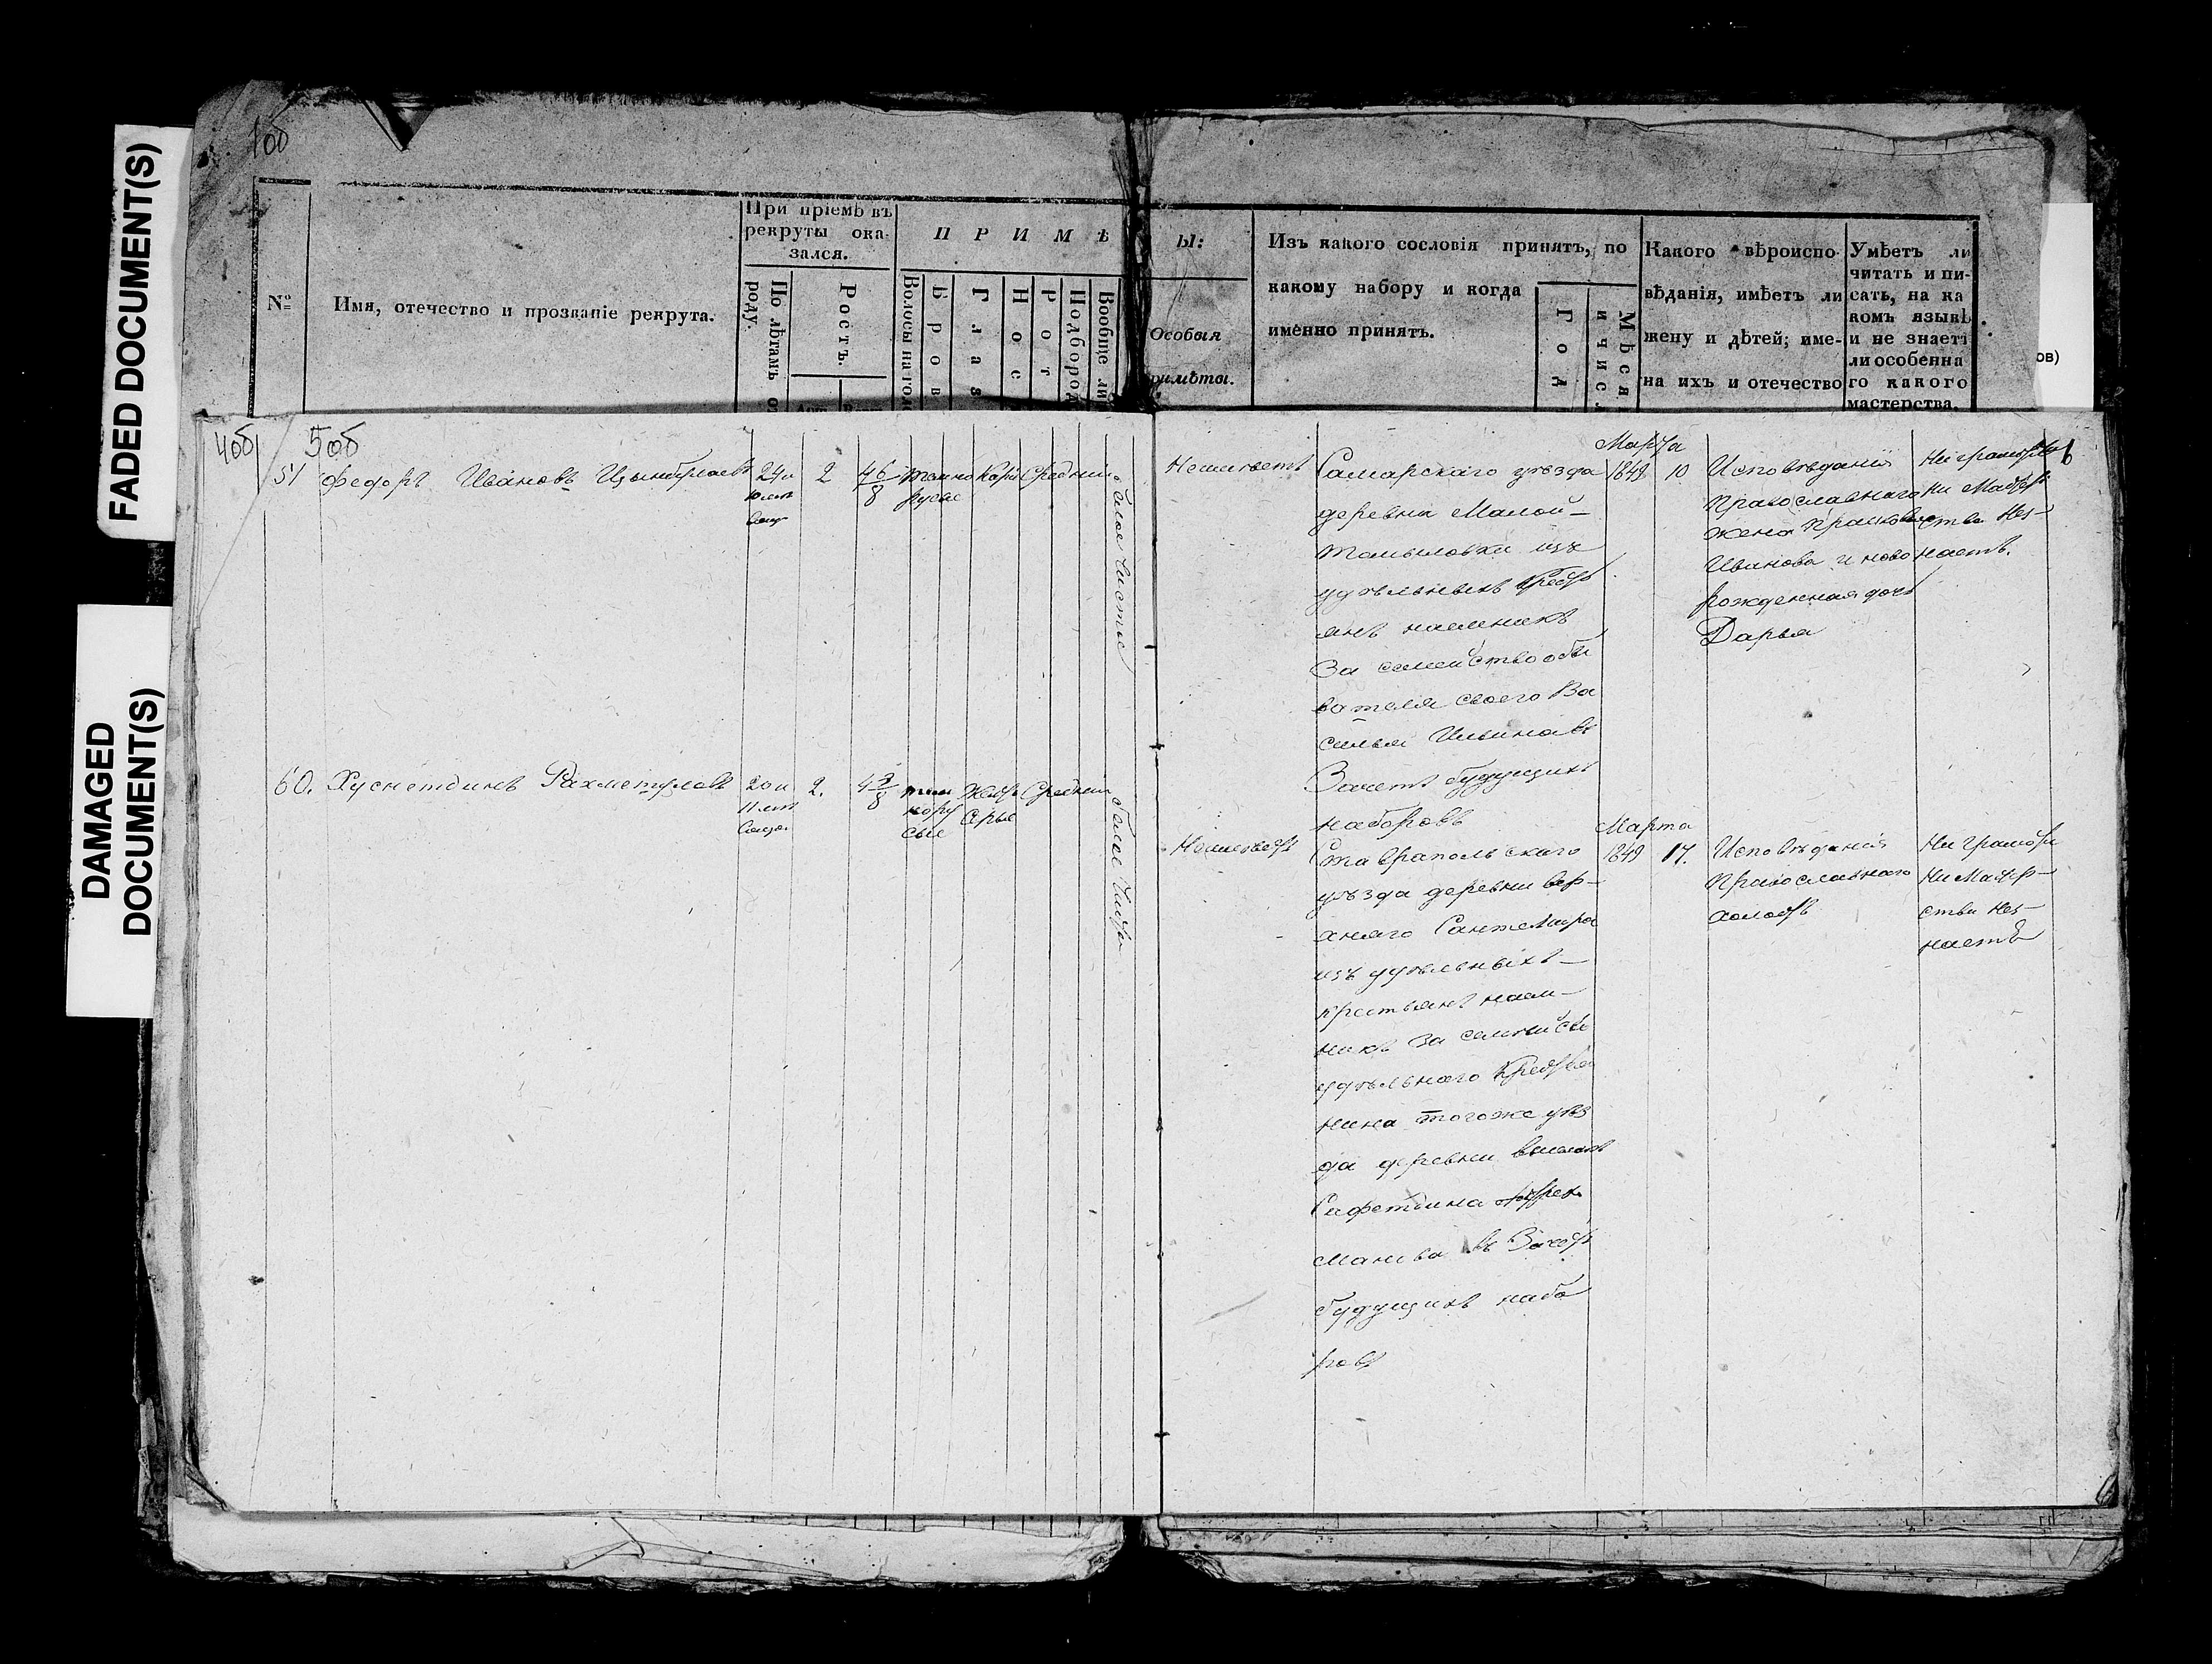 FADED DOCUMENT(S)
DAMAGED
DOCUMENT(S)
1об
№
Имя, отечество и прозваніе рекрута.
При пріемѣ въ
рекруты ока-
зался.
По лѣтамъ от
роду.
Ростъ.
ПРИМѢ
Волосы на го
Бров
Глаз
Нос
Рот
Подбород
Вообще ли
ы:
Особыя
римѣты.
Изъ какого сословія принятъ, по
какому набору и когда
именно принятъ.
Год
Мѣся
и чис
Какого вѣроиспо-
вѣданія, имѣетъ ли
жену и дѣтей; име-
на ихъ и отечество
Умѣетъ ли
читать и пи-
сать, на ка
комъ языкѣ
и не знаетъ
ли особенна
го какого
мастерства.
ов)
4об
5об
Федоръ Ивановъ
24 и
2
4 6/8
темно
русые
Карі
Средніи
белое чистое
Неимеетъ
Самарскаго уезда
деревни Малой-
Томыловки изъ
удельныхъ крест
янъ наемникъ
За семейство обы
вателя своего Ва
силья Ильина въ
Зачетъ будущихъ
наборовъ
Марта
1849 10
Исповѣданія
Православнаго
жена Прасковья
Иванова и ново
рожденная дочь
Дарья
Ни грамоты
ни Мастер
ства Нез-
наетъ.
6
60. Хуснетдинъ Рахметуловъ
20 и
11 лет
2.
4 3/8
тем
нору
сые
Желто
серые
Средніи
белое чисто
Неимеетъ
Ставрапольскаго
уезда деревни Вер-
хняго Сантемира
изъ удельныхъ-
крестьянъ наем-
никъ За семейсво
удельнаго крестья
нина тогоже уез
да деревни
Сафетдина
манова въ Зачотъ
будущихъ набо
ровъ
Марта
1849 17.
Исповѣданія
Православнаго
холостъ
Ни грамоты
Ни Мастер-
ства Нез-
наетъ